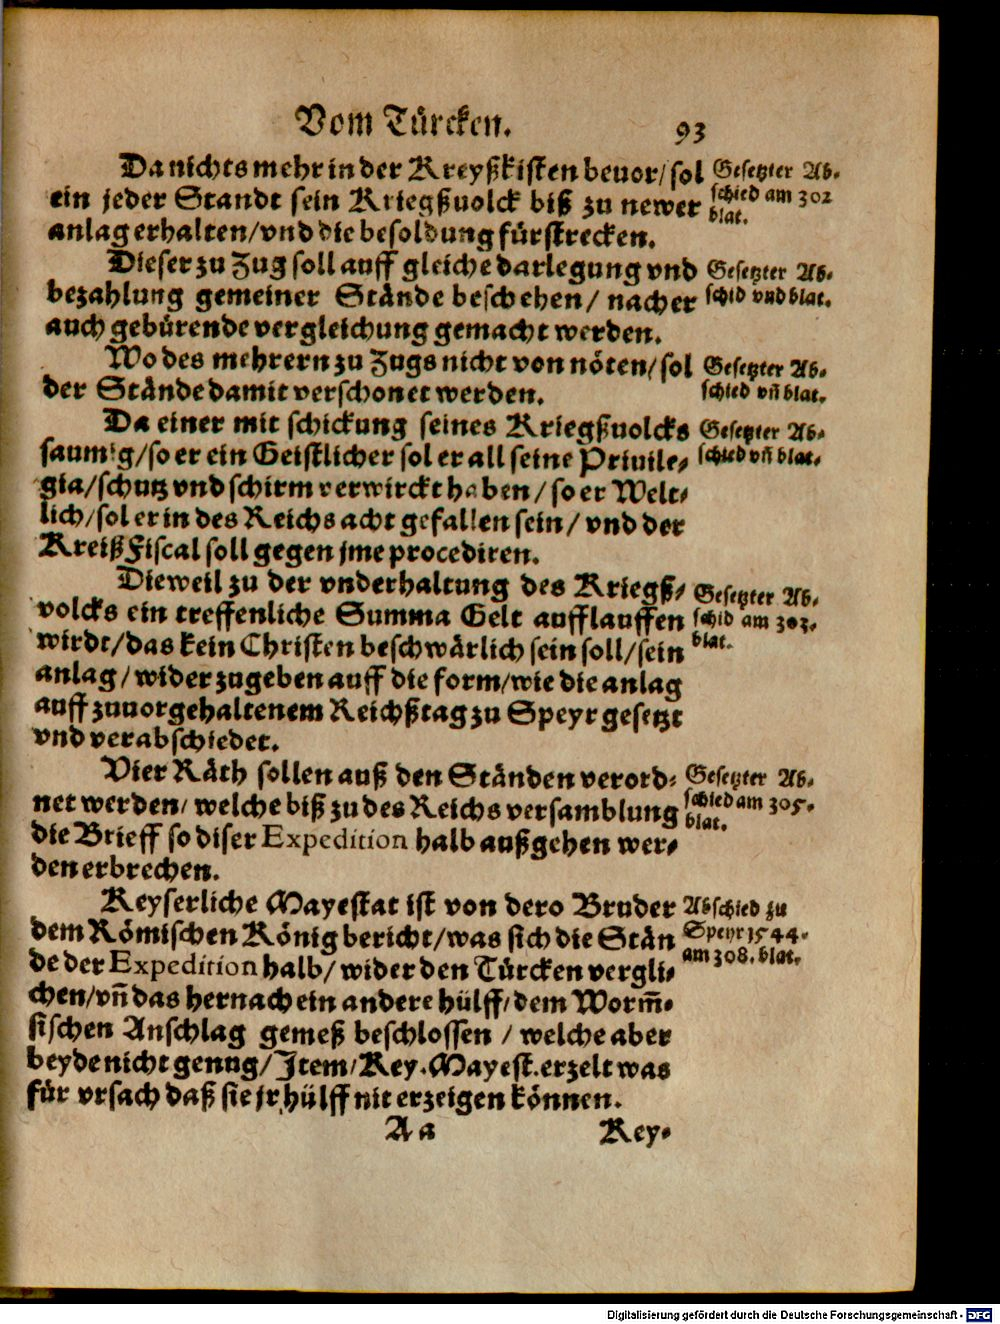 Vom Türcken. 93
Da nichts mehr in der Kreyßkisten beuor/ sol
ein jeder Standt sein Kriegßuolck biß zu newer
anlag erhalten/ vnd die besoldung fürstrecken.
Gesetzter Ab-
schied am 302
blat.
Dieser zu Zug soll auff gleiche darlegung vnd
bezahlung gemeiner Stände beschehen/ nacher
auch gebürende vergleichung gemacht werden.
Gesetzter Ab-
schid vnd blat.
Wo des mehrern zu Zugs nicht von nöten/ sol
der Stände damit verschonet werden.
Gesetzter Ab-
schied vñ blat.
Da einer mit schickung seines Kriegßuolcks
saumig/ so er ein Geistlicher sol er all seine Priuile-
gia/ schutz vnd schirm verwirckt haben/ so er Welt-
lich/ sol er in des Reichs acht gefallen sein/ vnd der
Kreiß Fiscal soll gegen jme procediren.
Gesetzter Ab-
schied vñ blat.
Dieweil zu der vnderhaltung des Kriegß-
volcks ein treffenliche Summa Gelt aufflauffen
wirdt/ das kein Christen beschwärlich sein soll/ sein
anlag/ wider zugeben auff die form/ wie die anlag
auff zuuorgehaltenem Reichßtag zu Speyr gesetzt
vnd verabschiedet.
Gesetzter Ab-
schid am 303.
blat.
Vier Räth sollen auß den Ständen verord-
net werden/ welche biß zu des Reichs versamblung
die Brieff so diser Expedition halb außgehen wer-
den erbrechen.
Gesetzter Ab-
schied am 305.
blat.
Keyserliche Mayestat ist von dero Bruder
dem Römischen König bericht/ was sich die Stän
de der Expedition halb/ wider den Türcken vergli-
chen/ vñ das hernach ein andere hülff/ dem Worm̃-
sischen Anschlag gemeß beschlossen / welche aber
beyde nicht genug/ Item/ Key. Mayest. erzelt was
für vrsach daß sie jr hülff nit erzeigen können.
Abschied zu
Speyr 1544.
am 308. blat.
Aa Key-
Digitalisierung gefördert durch die Deutsche Forschungsgemeinschaft - DFG